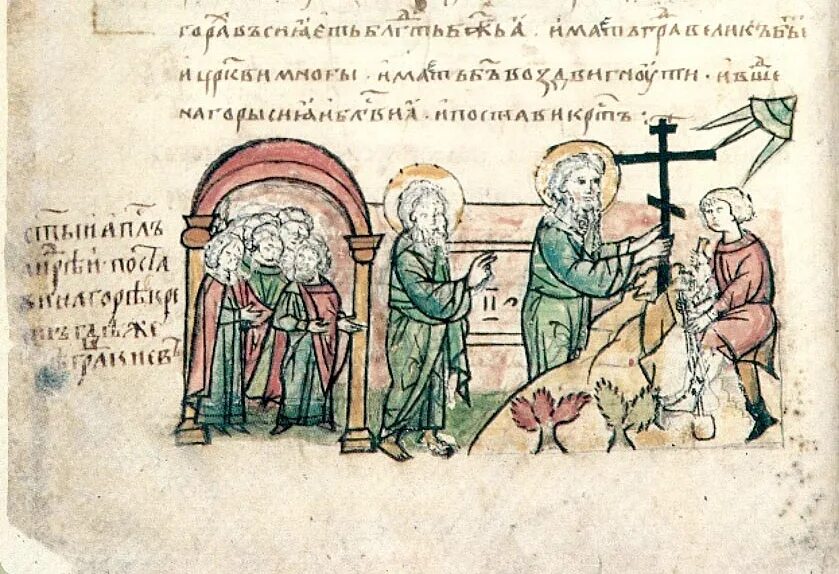 гораⷯ въсиꙗеть бл҃гть бж҃ьꙗ . имать граⷣ великъ быⷮ
и цр҃кви многы . имать бг҃ъ воздвигноути . и вшеⷣ
на горы сиꙗ и бл҃ви ꙗ . и постави крⷭтъ :
ст҃ыи апл҃ъ
андрѣи поста
ви на горѣ кре
стъ гдѣ же
граⷣ киевъ